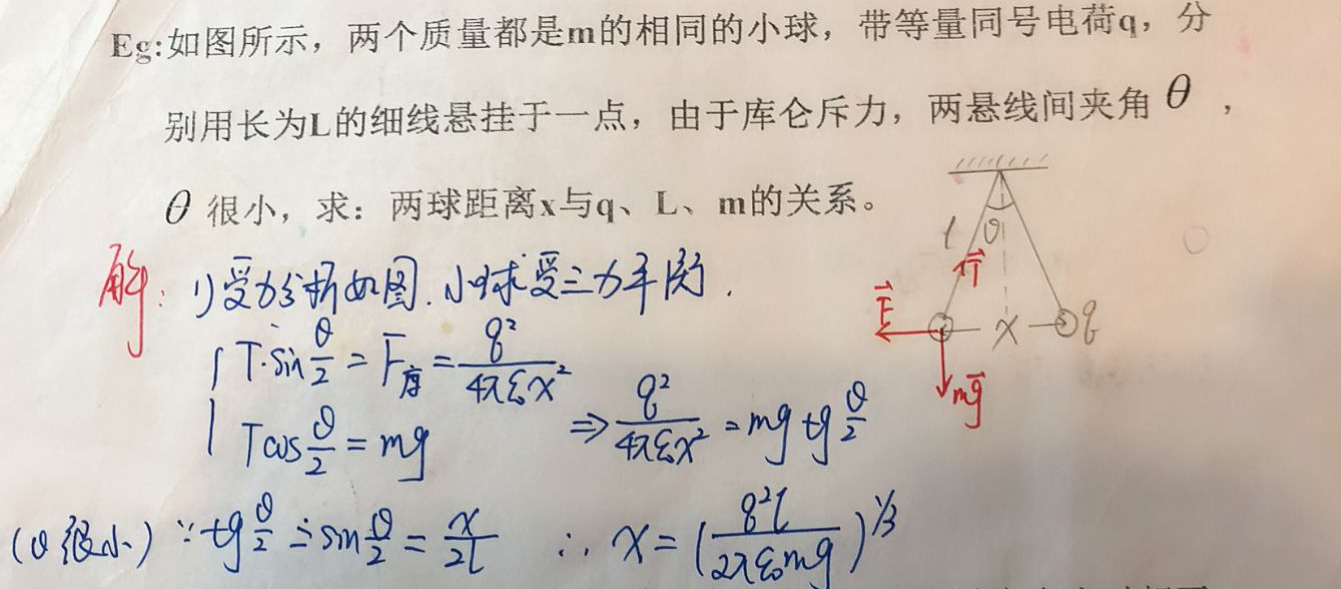 Eg:如图所示，两个质量都是m的相同的小球，带等量同号电荷q，分
别用长为L的细线悬挂于一点，由于库仑斥力，两悬线间夹角 θ ，
θ 很小，求：两球距离x与q、L、m的关系。
解：1)受力分析如图.小球受三力平衡.
T·sin θ/2 = F库 = q²/4πε₀x²
Tcos θ/2 = mg ⇒ q²/4πε₀x² = mg tg θ/2
(θ很小) ∵ tg θ/2 ≐ sin θ/2 = x/2l ∴ x = (q²l/2πε₀mg)^1/3
l θ
T
F x q
mg